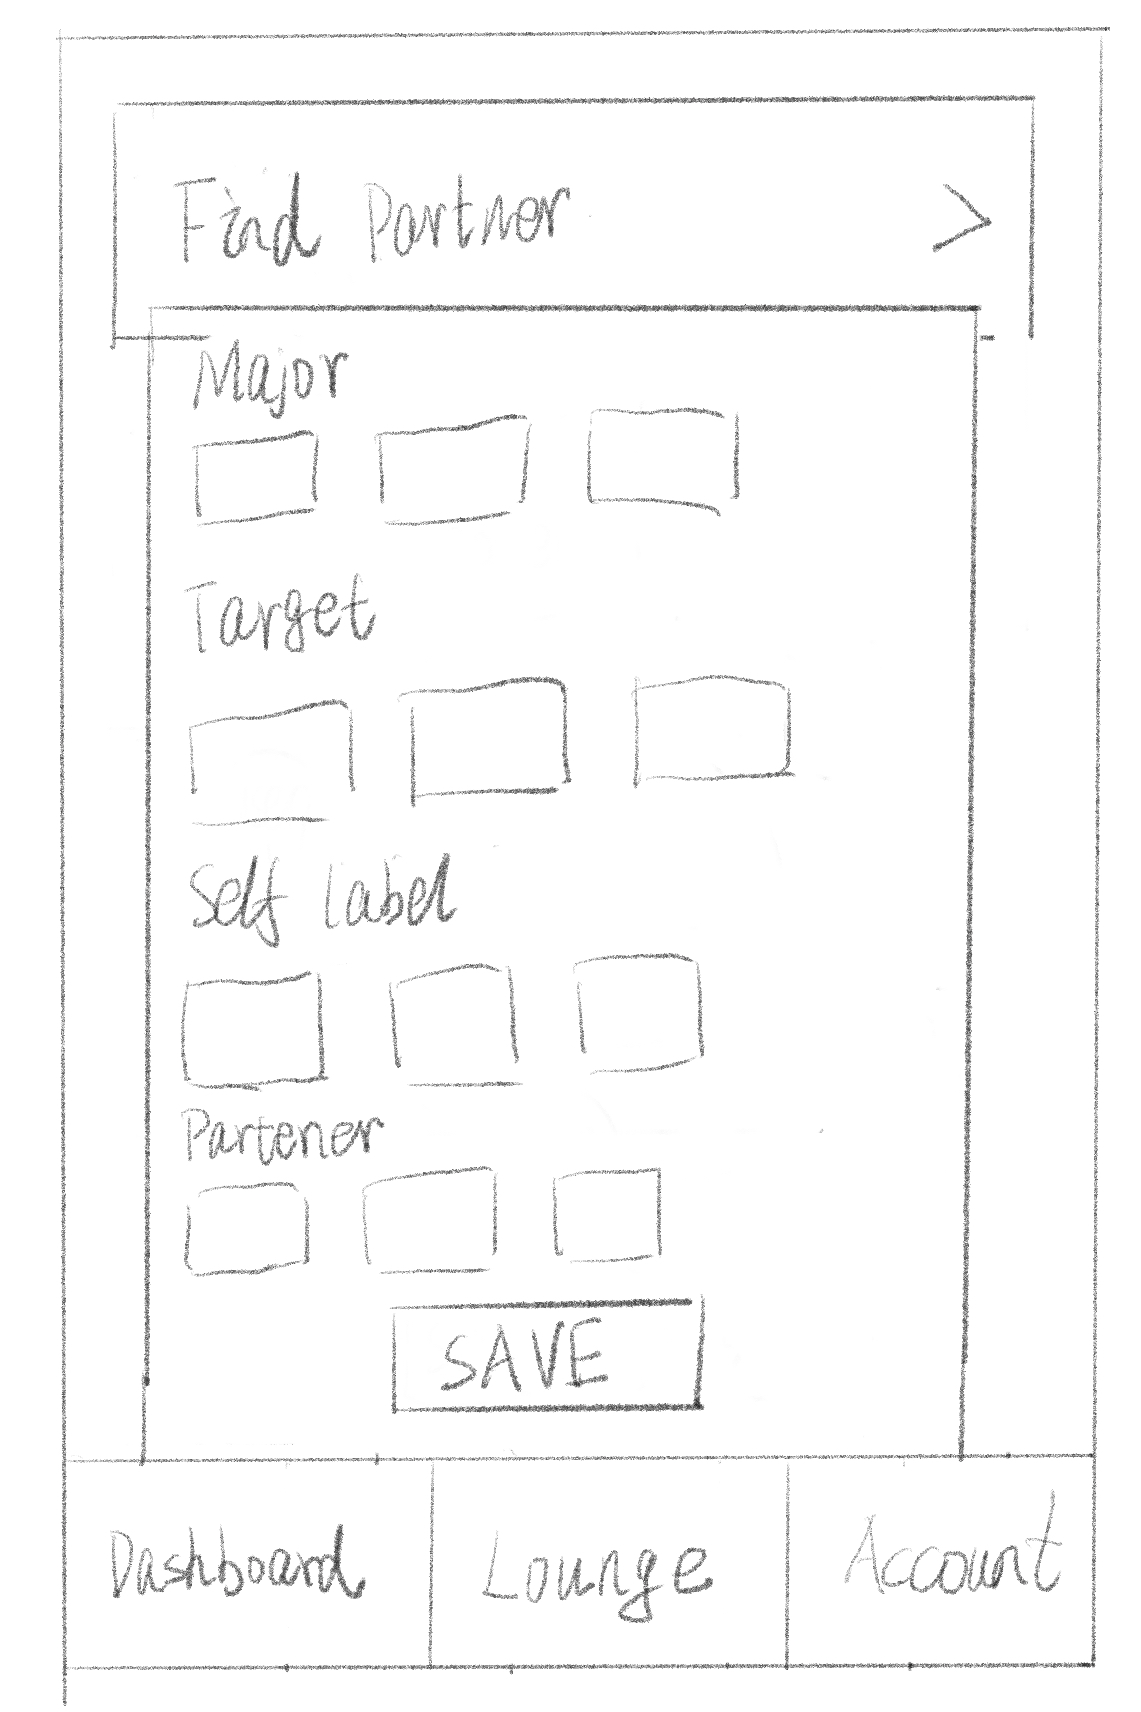 Find Partner
Major
Target
Self Label
Partener
SAVE
Dashboard Lounge Account